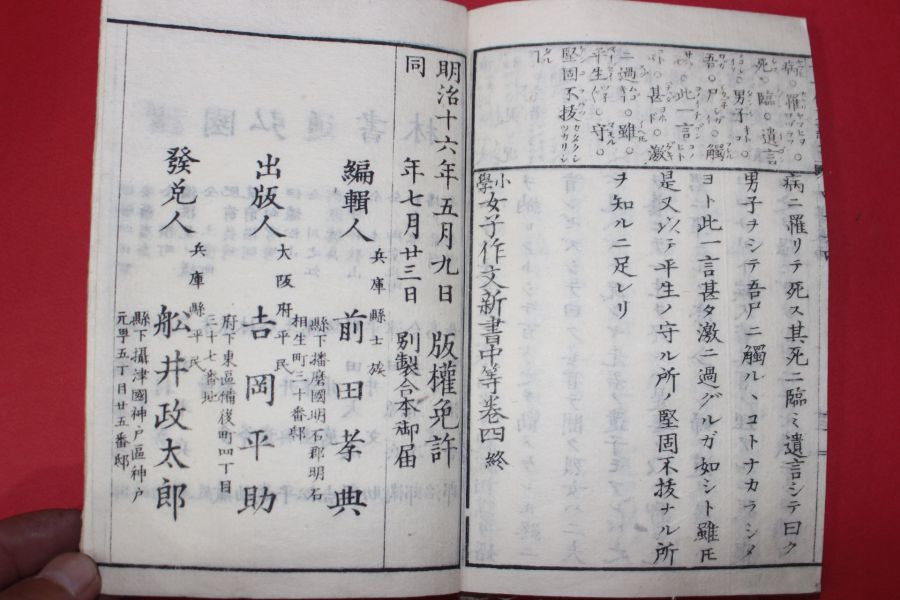 病○罹
死○臨○遺言
○男子○
吾○尸○觸
○此○言○
○甚○激
ニ過○雖○
平生○守○
堅固不拔
病ニ罹リテ死ス其死ニ臨ミ遺言シテ曰ク
男子ヲシテ吾尸ニ觸ルヽコトナカラシタ
ヨト此一言甚タ激ニ過グルガ如シト雖𪜈
是又以テ平生ノ守ル所ノ堅固不拔ナル所
ヲ知ルニ足レリ
小學女子作文新書中等卷四終
明治十六年五月九日 版權免許
同年七月廿三日 別製合本御届
編輯人 兵庫縣士族 前田孝典
縣下播磨國明石郡明石
相生町三十番邸
出版人 大阪府平民 吉岡平助
府下東區備後町四丁目
三十七番地
發兌人 兵庫縣平民 舩井政太郎
縣下攝津國神戸區神戸
元町五丁目廿五番邸